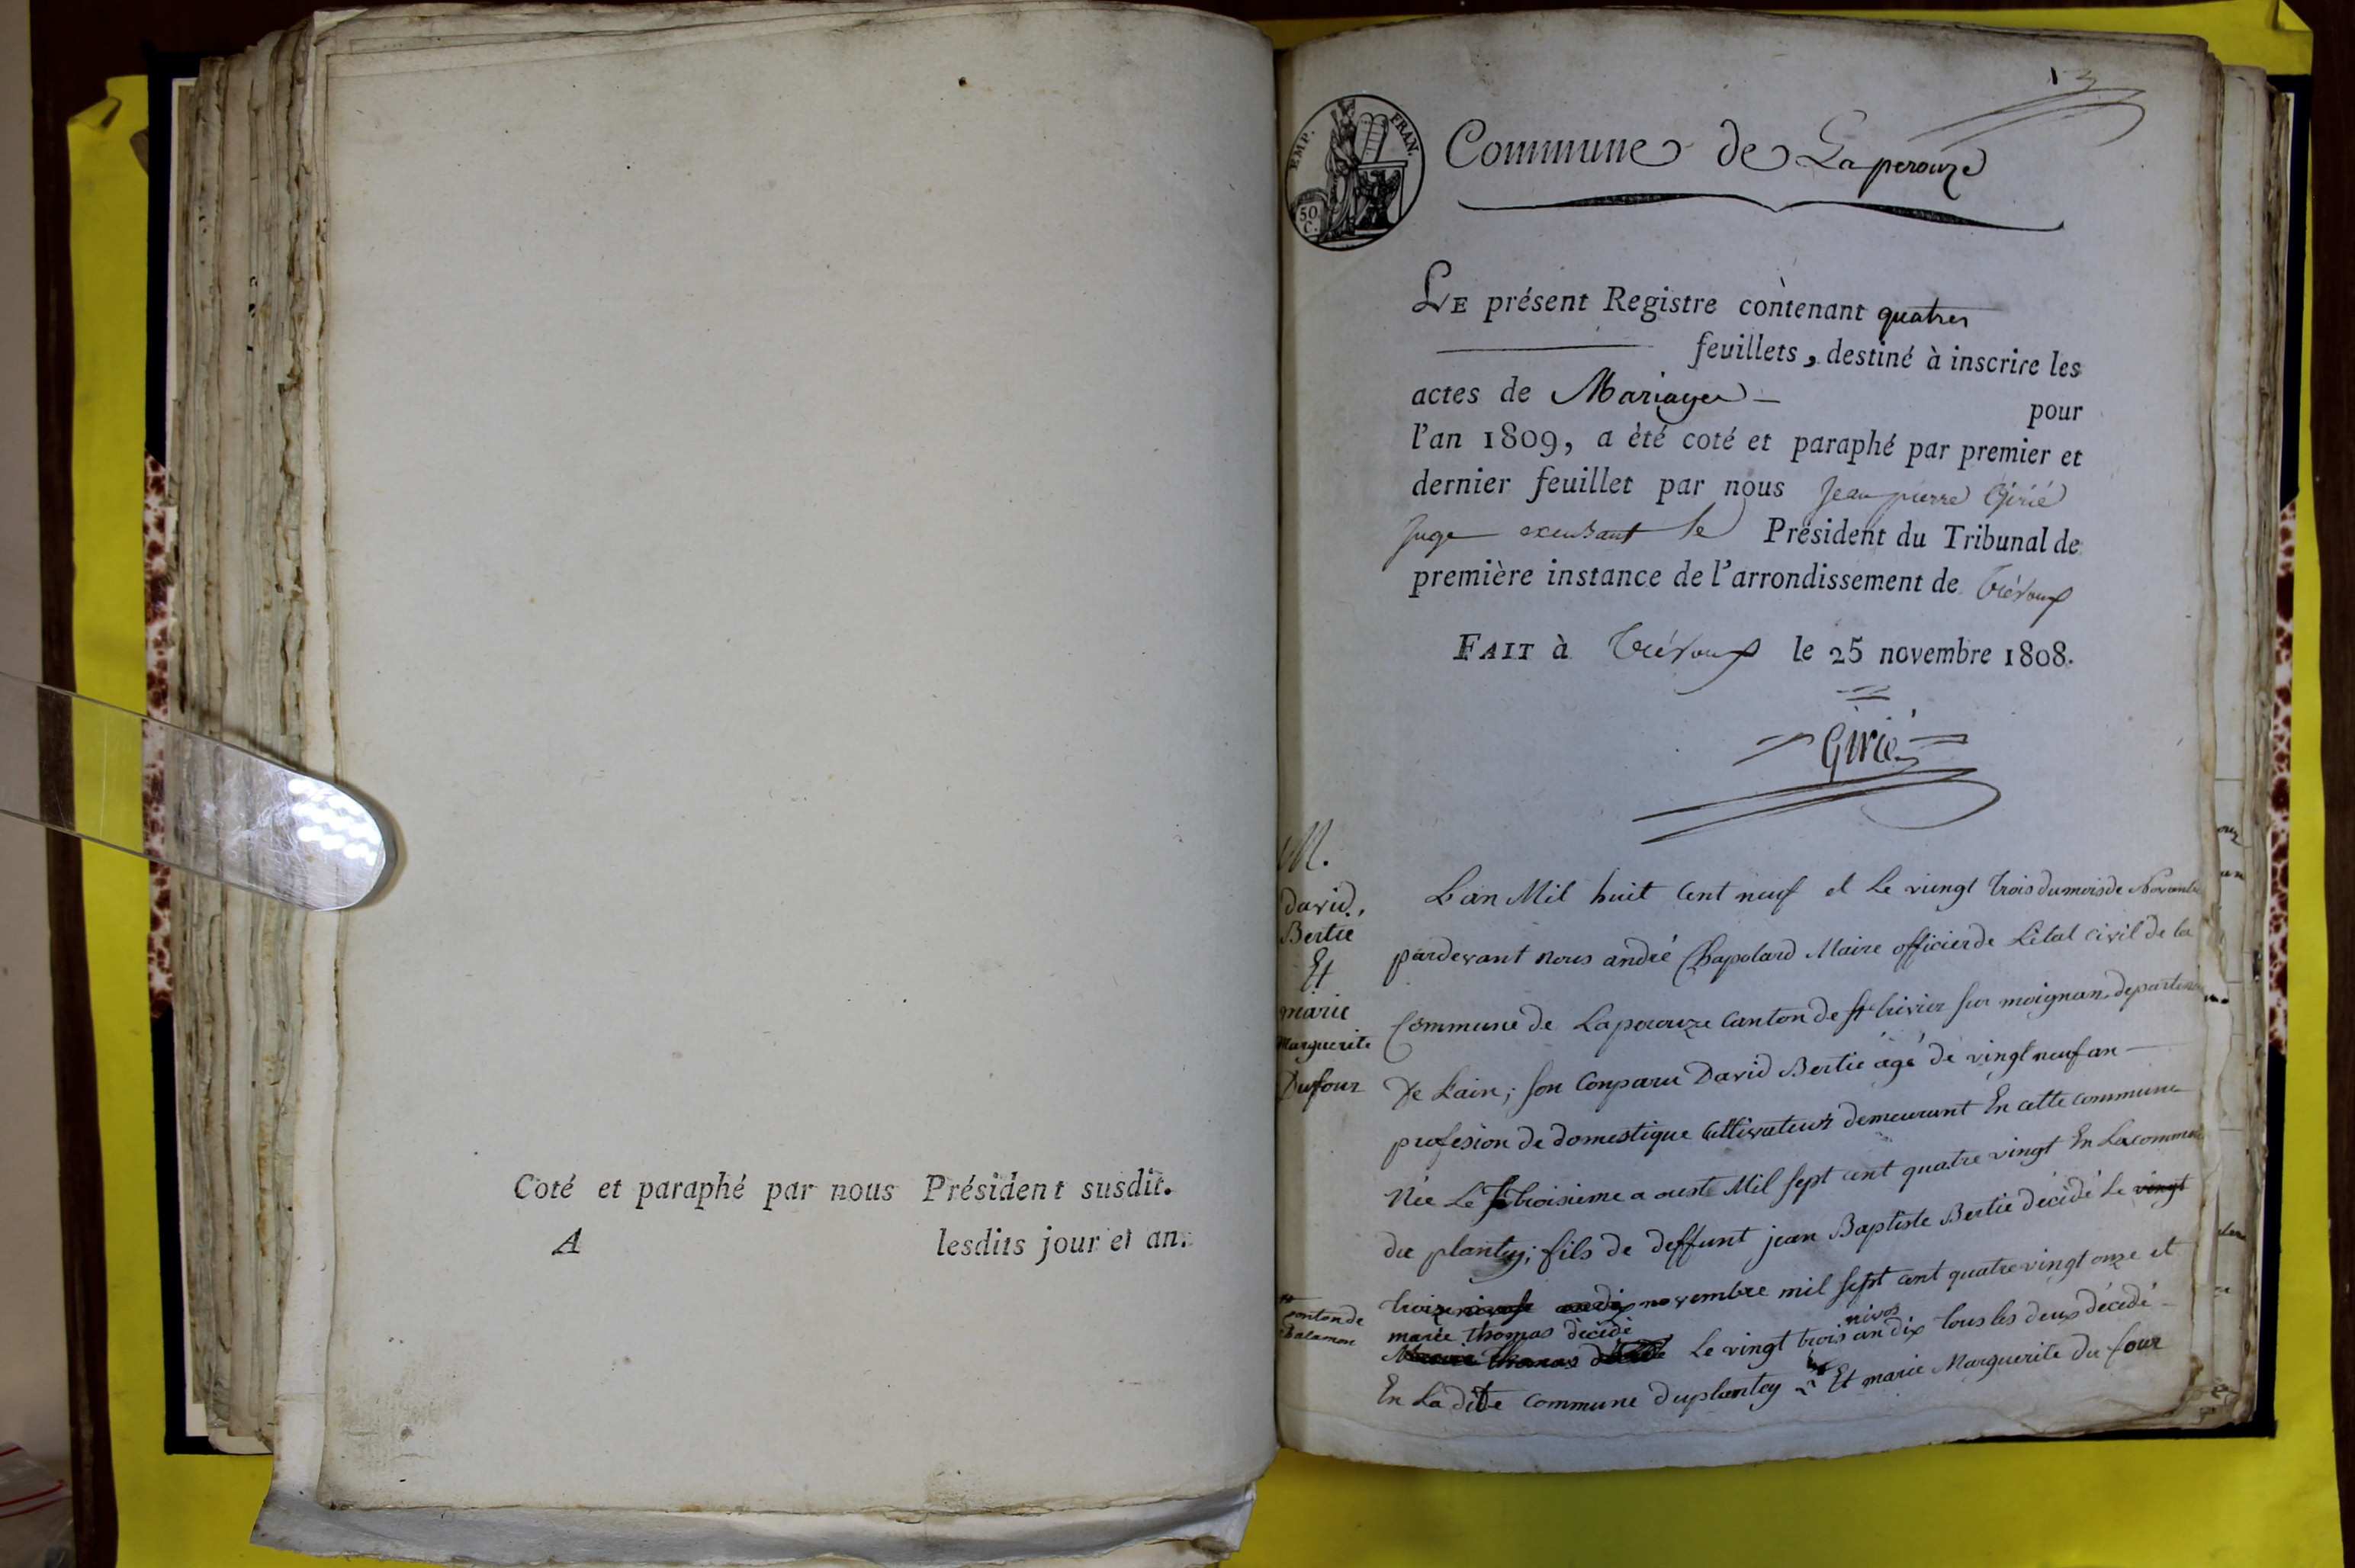 Coté et paraphé par nous Président susdit.
A lesdits jour et an.
13
EMP. FRAN.
50
C.
Commune de Laperouze
LE présent Registre contenant quatres
feuillets, destiné à inscrire les
actes de Mariages
pour
l'an 1809, a été coté et paraphé par premier et
dernier feuillet par nous Jean pierre Girié
Juge exerçant le Président du Tribunal de
première instance de l'arrondissement de Trévoux
FAIT à Trévoux le 25 novembre 1808.
Girié
M.
David
Bertie
Et
marie
Marguerite
Dufour
L'an Mil huit Cent neuf et Le viengt trois du mois de Novembre
pardevant nous andré Chapolard Maire officier de L'état civil de la
Commune de Laperouze Canton de st trivier sur moignan departem
De L'ain; son Conparu David Bertie âgé de vingt neuf an
profesion de domestique Cultivateur demeurant En cette commune
Née Le troisieme a ouste Mil sept cent quatre vingt En La commune
du plantey; fils de deffunt jean Baptiste Bertie décédé Le vingt
treize novembre mil sept cent quatre vingt onze et
marie thomas décédé
Marie thomas Le vingt trois nivos an dix tous les deux décédé
En La dite commune du plantey Et marie Marguerite Du four
conton de
Chalamon